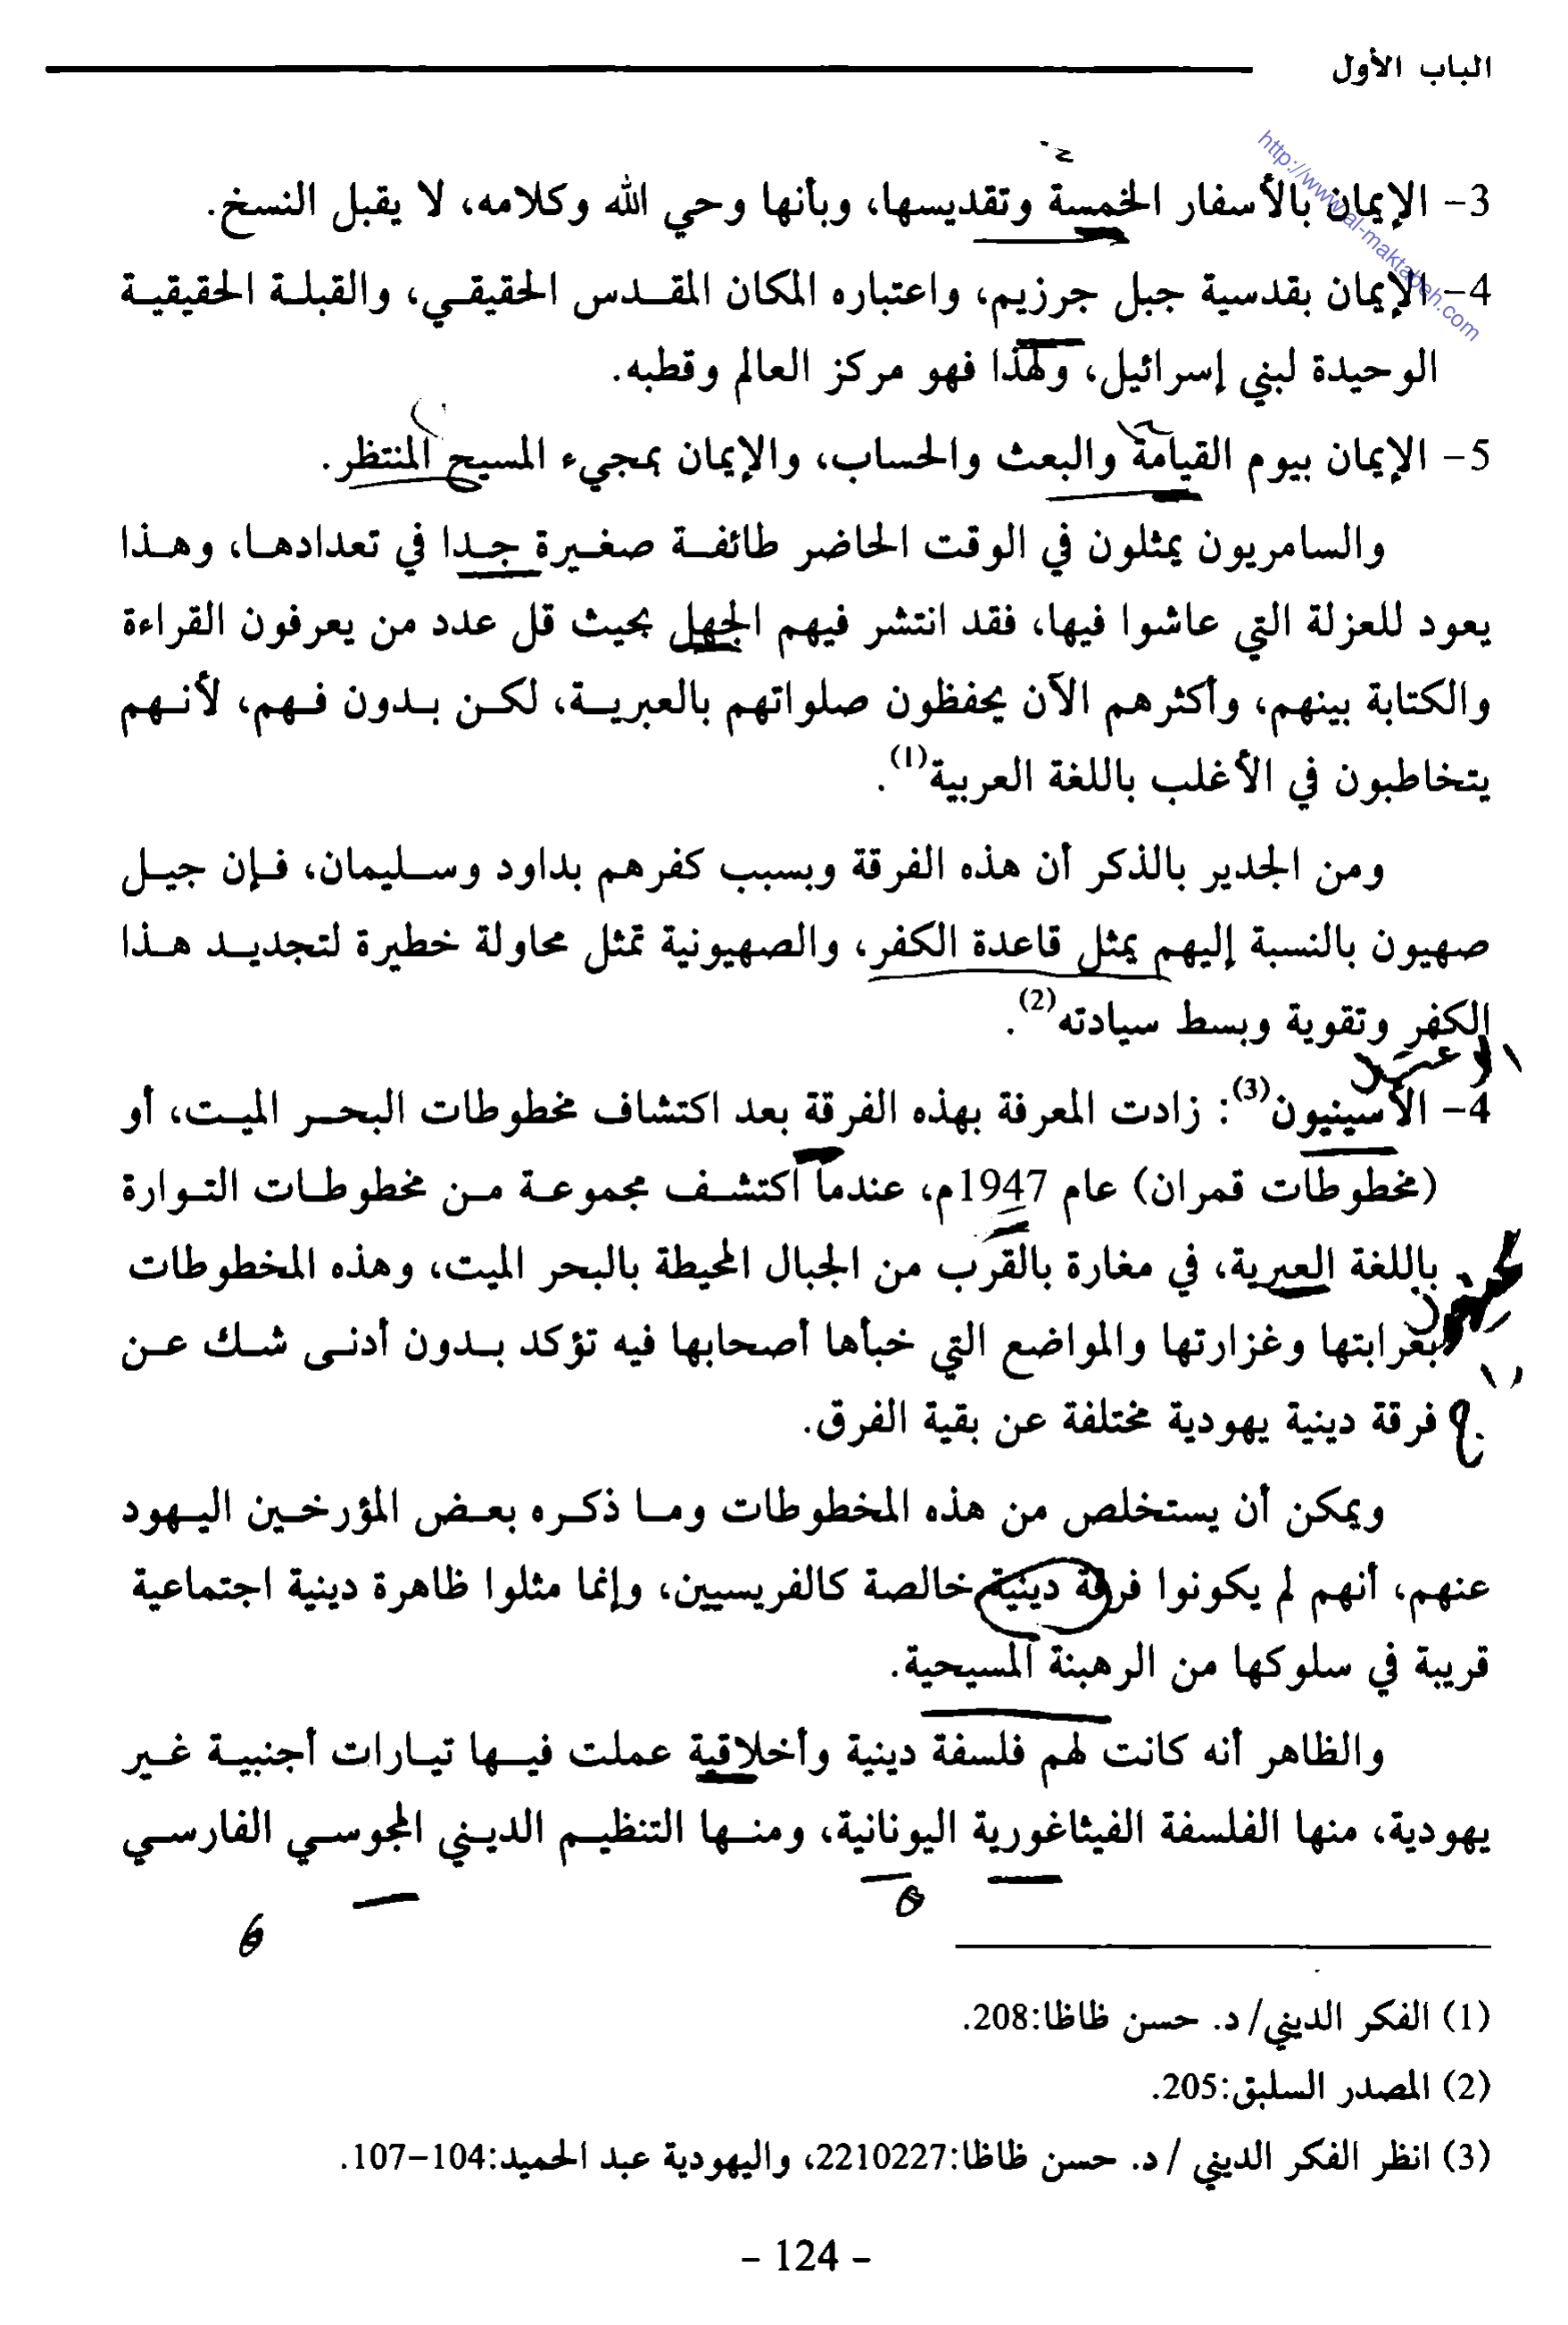 الباب الأول
http://www.al-maktabeh.com
3- الإيمان بالأسفار الخمسة وتقديسها، وبأنها وحي الله وكلامه، لا يقبل النسخ.
4- الإيمان بقدسية جبل جرزيم، واعتباره المكان المقدس الحقيقي، والقبلة الحقيقية
الوحيدة لبني إسرائيل، ولهذا فهو مركز العالم وقطبه.
5- الإيمان بيوم القيامة والبعث والحساب، والإيمان بمجيء المسيح المنتظر.
والسامريون يمثلون في الوقت الحاضر طائفة صغيرة جدا في تعدادها، وهذا
يعود للعزلة التي عاشوا فيها، فقد انتشر فيهم الجهل بحيث قل عدد من يعرفون القراءة
والكتابة بينهم، وأكثرهم الآن يحفظون صلواتهم بالعبرية، لكن بدون فهم، لأنهم
يتخاطبون في الأغلب باللغة العربية(1).
ومن الجدير بالذكر أن هذه الفرقة وبسبب كفرهم بداود وسليمان، فإن جيل
صهيون بالنسبة إليهم يمثل قاعدة الكفر، والصهيونية تمثل محاولة خطيرة لتجديد هذا
الكفر وتقوية وبسط سيادته(2).
4- الأسينيون(3): زادت المعرفة بهذه الفرقة بعد اكتشاف مخطوطات البحر الميت، أو
(مخطوطات قمران) عام 1947م، عندما اكتشف مجموعة من مخطوطات التوارة
باللغة العبرية، في مغارة بالقرب من الجبال المحيطة بالبحر الميت، وهذه المخطوطات
بغرابتها وغزارتها والمواضع التي خبأها أصحابها فيه تؤكد بدون أدنى شك عن
فرقة دينية يهودية مختلفة عن بقية الفرق.
ويمكن أن يستخلص من هذه المخطوطات وما ذكره بعض المؤرخين اليهود
عنهم، أنهم لم يكونوا فرقة دينية خالصة كالفريسيين، وإنما مثلوا ظاهرة دينية اجتماعية
قريبة في سلوكها من الرهبنة المسيحية.
والظاهر أنه كانت لهم فلسفة دينية وأخلاقية عملت فيها تيارات أجنبية غير
يهودية، منها الفلسفة الفيثاغورية اليونانية، ومنها التنظيم الديني المجوسي الفارسي
(1) الفكر الديني/ د. حسن ظاظا:208.
(2) المصدر السلبق:205.
(3) انظر الفكر الديني / د. حسن ظاظا:2210227، واليهودية عبد الحميد:104-107.
- 124 -